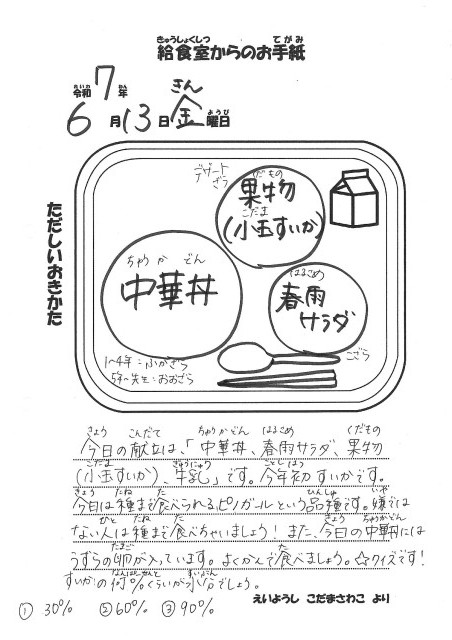 きゅうしょくしつ てがみ
給食室からのお手紙
れいわ ねん きん
令和7年
6月13日金曜日
ようび
ただしいおきかた
デザート
ざら
くだもの
果物
こだま
(小玉すいか)
ちゅうか どん
中華丼
はるさめ
春雨
サラダ
1~4年=ふかざら
5年~先生=おおざら
こざら
きょう こんだて ちゅうかどん はるさめ くだもの
今日の献立は、「中華丼、春雨サラダ、果物
こだま ぎゅうにゅう ことしはつ
(小玉すいか)、牛乳」です。今年初すいかです。
きょう たね た ひんしゅ いや
今日は種まで食べられるピノガールという品種です。嫌では
ひと たね た きょう ちゅうかどん
ない人は種まで食べちゃいましょう! また、今日の中華丼には
たまご はい た
うずらの卵が入っています。よくかんで食べましょう。☆クイズです!
なんぱーせんと すいぶん
すいかの何%くらいが水分でしょう。
えいようし こだまさわこ より
①30% ②60% ③90%